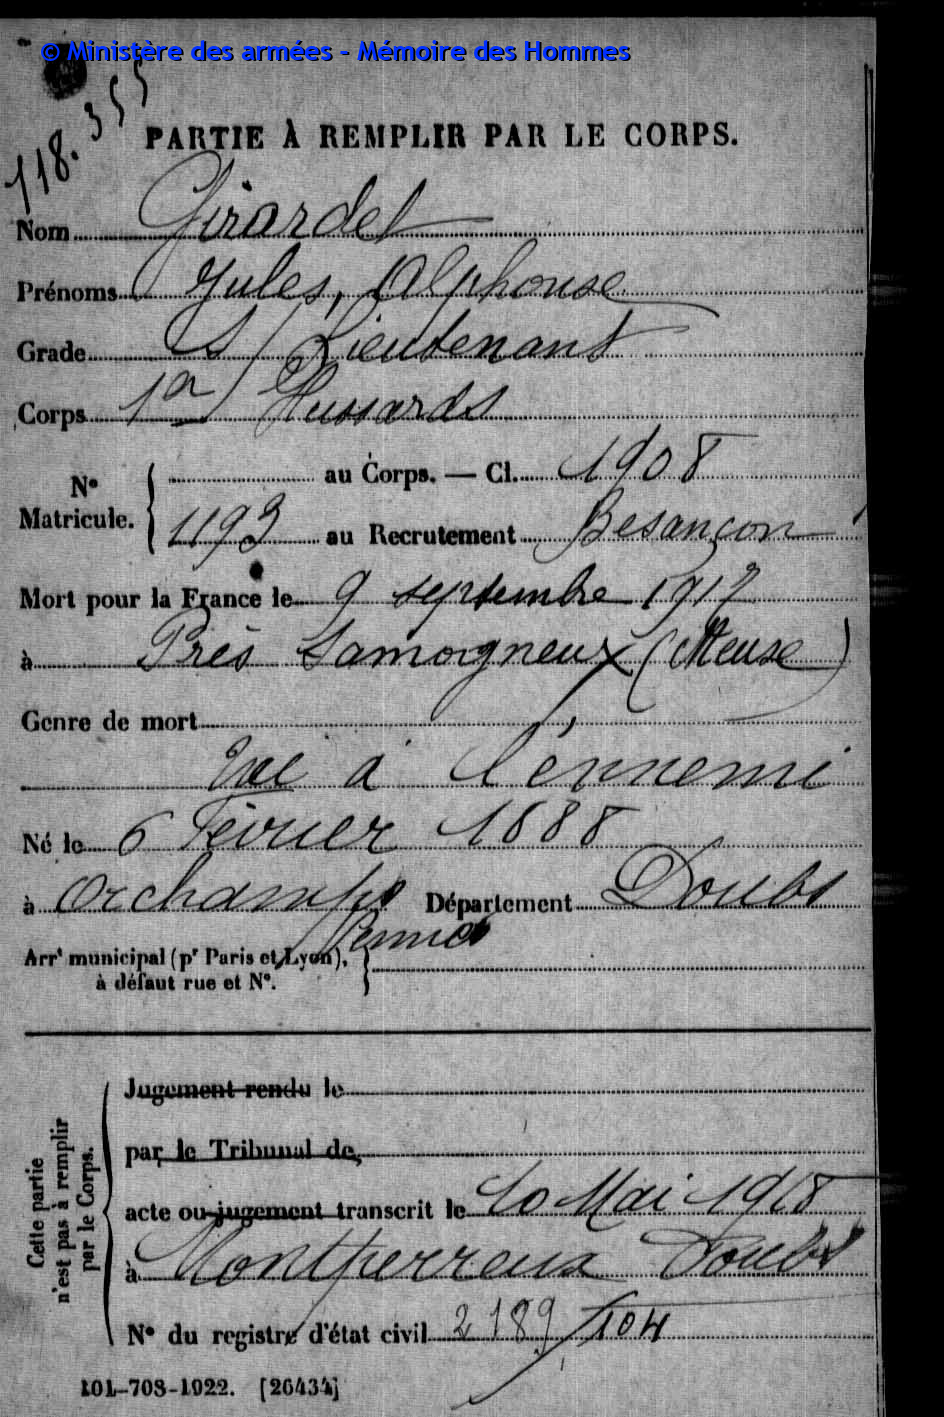 © Ministère des armées - Mémoire des Hommes
118.355
PARTIE À REMPLIR PAR LE CORPS.
Nom Girardet
Prénoms Jules, Alphonse
Grade S/Lieutenant
Corps 1er Hussards
N° Matricule. { au Corps. — Cl. 1908
1193 au Recrutement Besançon
Mort pour la France le 9 septembre 1917
à Près Samogneux (Meuse)
Genre de mort
Tué à l'ennemi
Né le 6 Février 1888
à Orchamps Département Doubs
Vennes
Arrt municipal (pr Paris et Lyon), }
à défaut rue et N°.
Cette partie
n'est pas à remplir
par le Corps.
Jugement rendu le
par le Tribunal de
acte ou jugement transcrit le 10 Mai 1918
à Montperreux Doubs
N° du registre d'état civil 2189/104
101-708-1922. [26434]